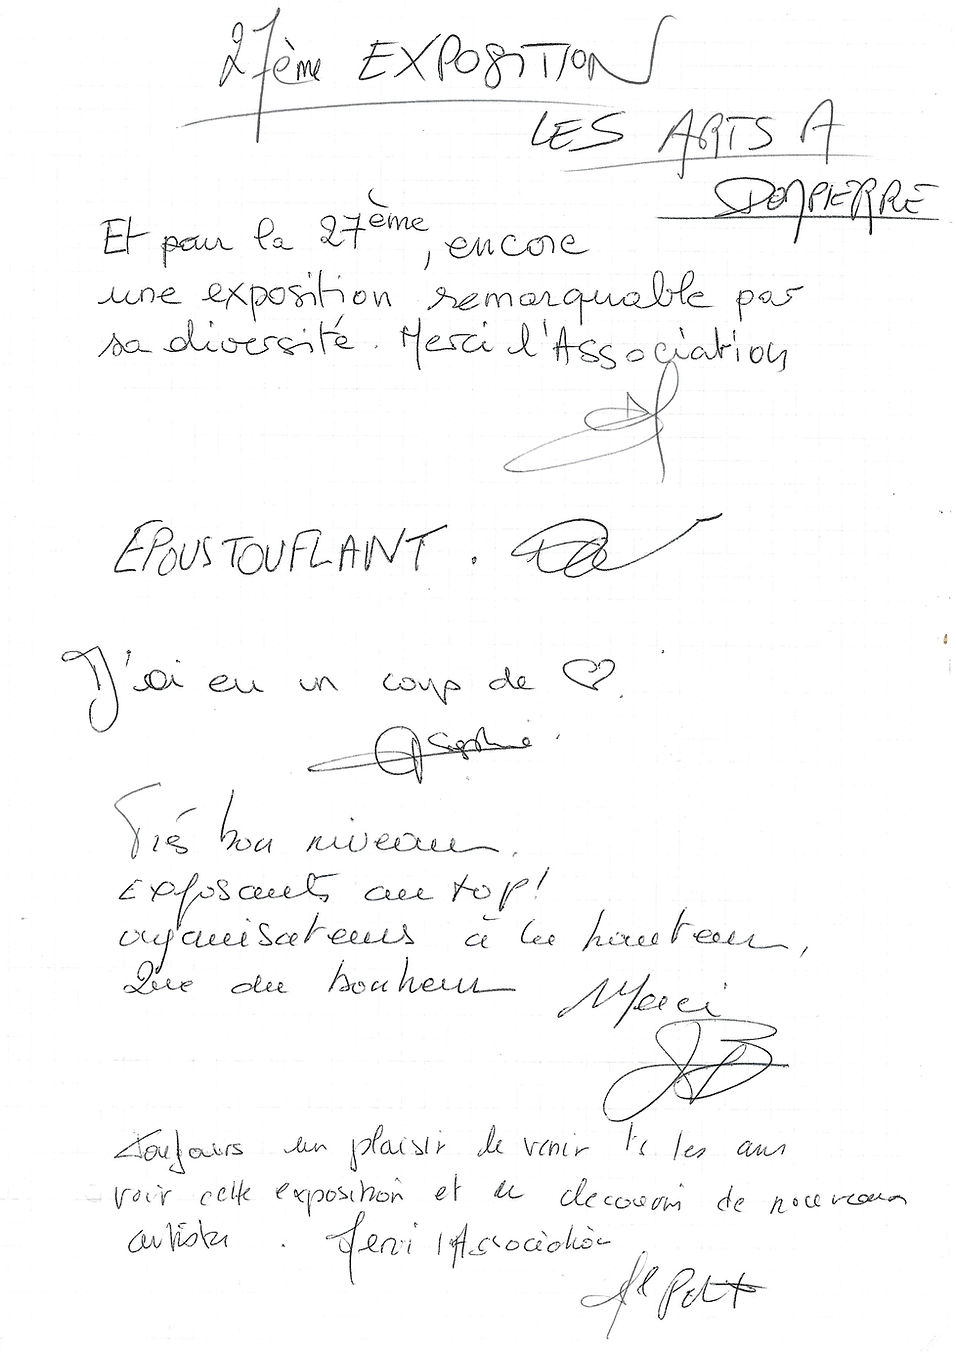 27ème EXPOSITION
LES ARTS A
DOMPIERRE
Et pour la 27ème, encore
une exposition remarquable par
sa diversité. Merci l'Association
EPOUSTOUFLANT.
J'ai eu un coup de ♡.
Sophie
Très bon niveau,
Exposants au top!
organisateurs à la hauteur,
Que du bonheur Merci
JB
Toujours un plaisir de venir ts les ans
voir cette exposition et de decouvrir de nouveaux
artistes. Merci l'Association